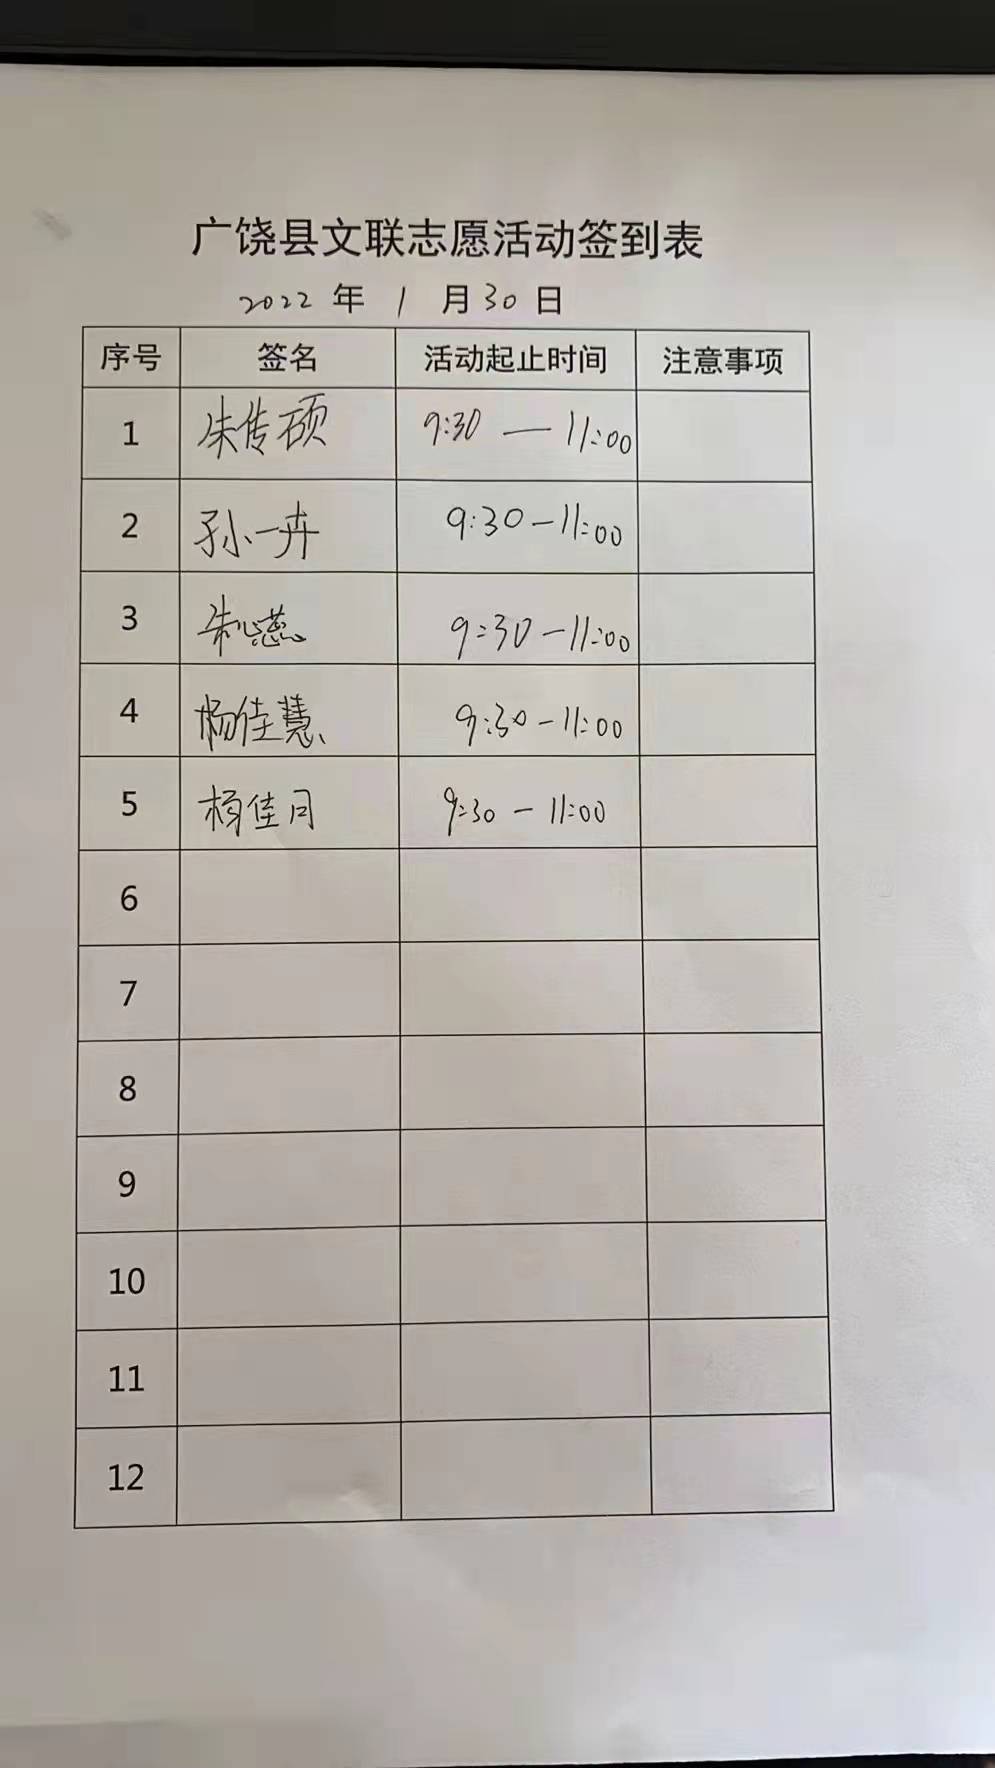 广饶县文联志愿活动签到表
2022 年 1 月 30 日
序号 签名 活动起止时间 注意事项
1 朱传硕 9:30 — 11:00
2 孙一卉 9:30 - 11:00
3 9:30 - 11:00
4 杨佳慧 9:30 - 11:00
5 杨佳月 9:30 - 11:00
6
7
8
9
10
11
12